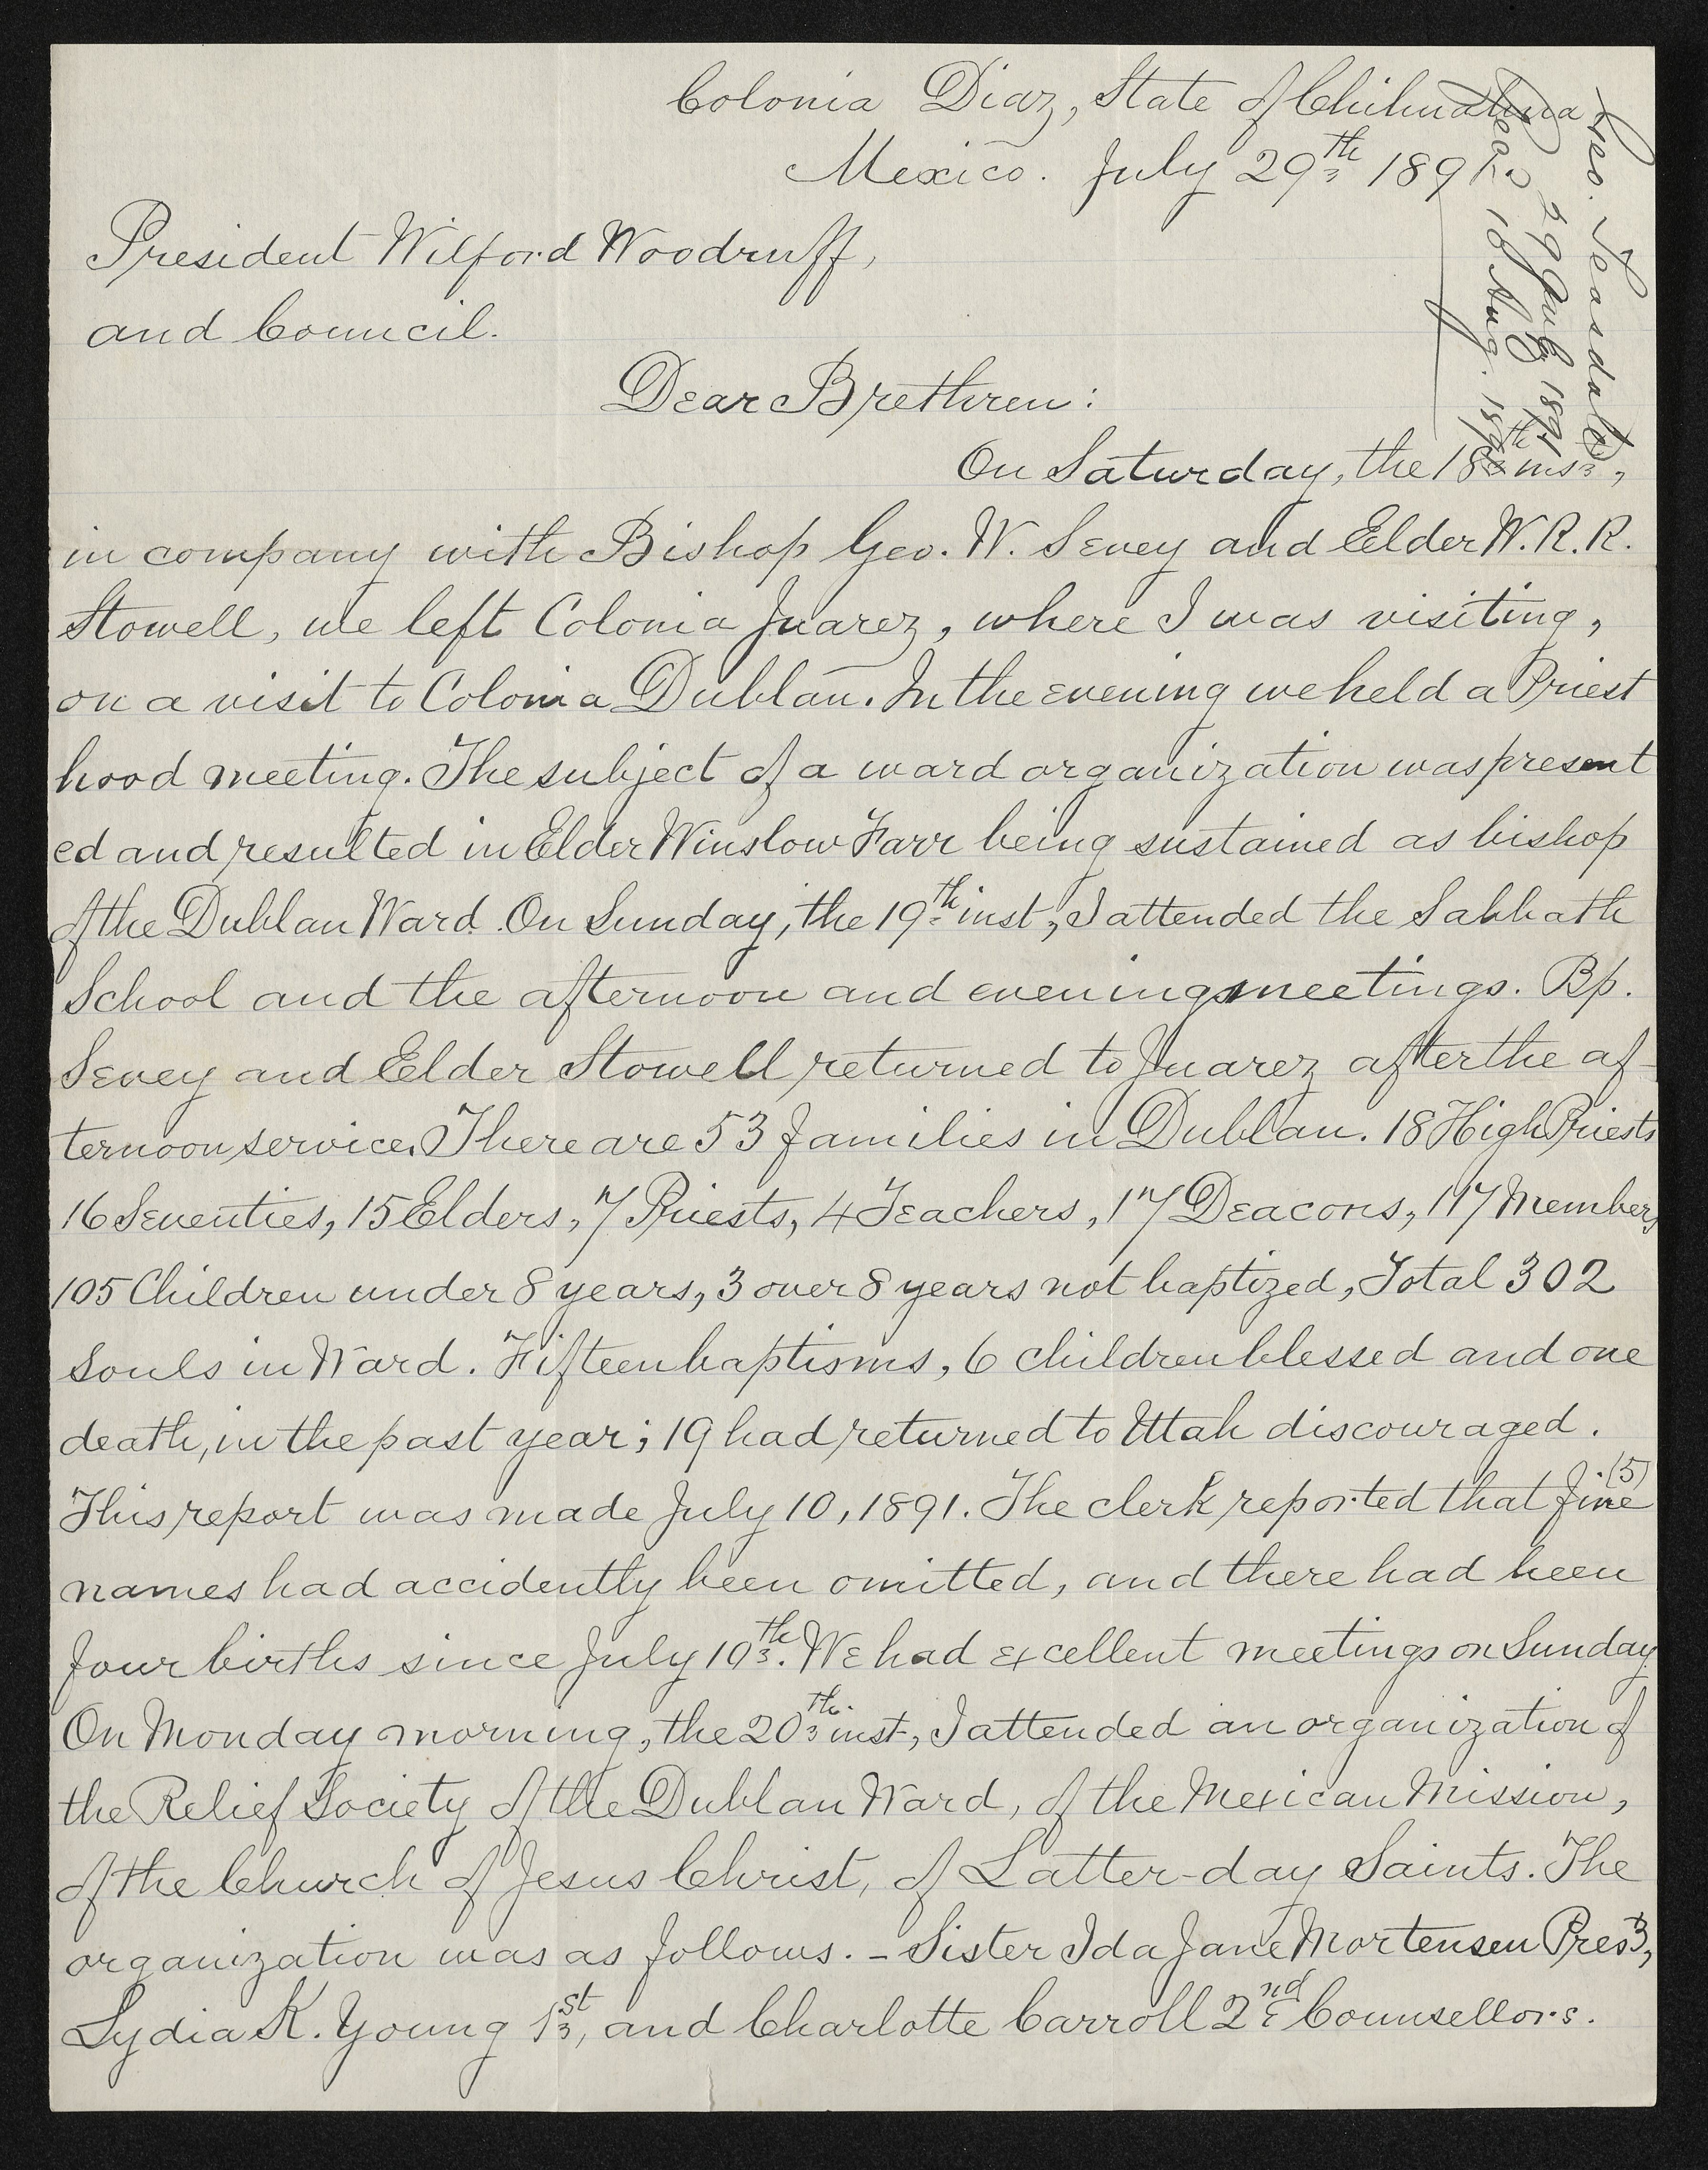 Colonia Diaz, State of Chihuahua
Mexico. July 29th 1891.
Geo. Teasdale,
29 July 1891
Recd 10 Aug. 1891
President Wilford Woodruff,
and Council.
Dear Brethren:
On Saturday, the 18th inst,
in company with Bishop Geo. W. Sevey and Elder W. R. R.
Stowell, we left Colonia Juarez, where I was visiting,
on a visit to Colonia Dublan. In the evening we held a Priest
hood meeting. The subject of a ward organization was present
ed and resulted in Elder Winslow Farr being sustained as bishop
of the Dublan Ward. On Sunday, the 19th inst, I attended the Sabbath
School and the afternoon and evening meetings. Bp.
Sevey and Elder Stowell returned to Juarez after the af-
ternoon service. There are 53 families in Dublan. 18 High Priests
16 Seventies, 15 Elders, 7 Priests, 4 Teachers, 17 Deacons, 117 Members
105 Children under 8 years, 3 over 8 years not baptized, Total 302
souls in Ward. Fifteen baptisms, 6 children blessed and one
death, in the past year; 19 had returned to Utah discouraged.
This report was made July 10, 1891. The clerk reported that five (5)
names had accidently been omitted, and there had been
four births since July 10th. We had excellent meetings on Sunday.
On Monday morning, the 20th inst, I attended an organization of
the Relief Society of the Dublan Ward, of the Mexican Mission,
of the Church of Jesus Christ, of Latter-day Saints. The
organization was as follows. - Sister Ida Jane Mortensen Prest,
Lydia K. Young 1st, and Charlotte Carroll 2nd Counsellors.